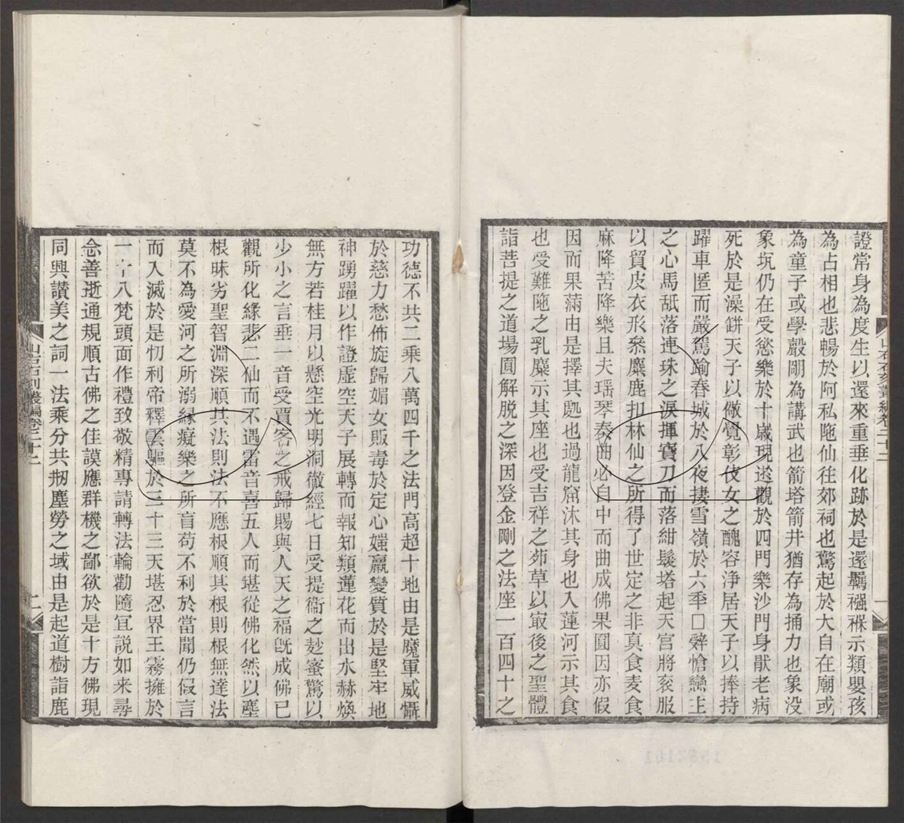 證常身為度生以還來重垂化跡於是還羈襁褓示類嬰孩
為占相也悲暢於阿私陁仙往郊祠也驚起於大自在廟或
為童子或學嚴剛為講武也箭塔箭井猶存為捅力也象没
象坑仍在受慾樂於十歲現遊觀於四門樂沙門身猒老病
死於是澡餅天子以儆覺彰伎女之醜容淨居天子以捧持
躍車匿而嚴駕踰春城於八夜捿雪嶺於六年□辤愴戀主
之心馬舐落連珠之淚揮寶刀而落紺髮塔起天宫將衮服
以貿皮衣形叅麋鹿扣林仙之所得了世定之非真食麦食
麻降苦降樂且夫瑶琴奏曲必自中而曲成佛果圓因亦假
因而果滿由是擇其處也過龍窟沐其身也入蓮河示其食
也受難陁之乳麋示其座也受吉祥之茆草以㝡後之聖體
詣菩提之道場圓解脱之深因登金剛之法座一百四十之
功德不共二乘八萬四千之法門高超十地由是魔軍威懾
於慈力愁佈旋歸媚女販毒於定心媸羸變質於是堅牢地
神踴躍以作證虛空天子展轉而報知類蓮花而出水赫煥
無方若桂月以懸空光明洞徹經七日受提謂之麨蜜驚以
少小之言垂一音受賈客之戒歸賜與人天之福旣成佛已
觀所化緣悲二仙而不遇雷音喜五人而堪從佛化然以塵
根昧劣聖智淵深順其法則法不應根順其根則根無達法
莫不為愛河之所溺緣癡樂之所盲苟不利於當聞仍假言
而入滅於是忉利帝釋雲驅於三十三天堪忍界王霧擁於
一十八梵頭面作禮致敬精專請轉法輪勸隨冝說如来尋
念善逝通規順古佛之佳謨應群機之鄙欲於是十方佛現
同興讚美之詞一法乘分共㧞塵勞之域由是起道樹詣鹿